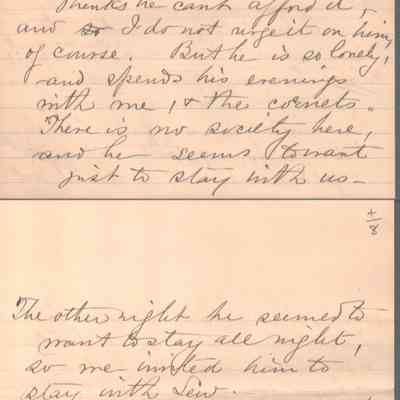 thinks he cant afford it,
and so I do not urge it on him,
of course. But he is so lonely,
and spends his evenings
with me, & the cornets.
There is no society here,
and he seems to want
just to stay with us—
8
The other night he seemed to
want to stay all night,
so we invited him to
stay with Lew.